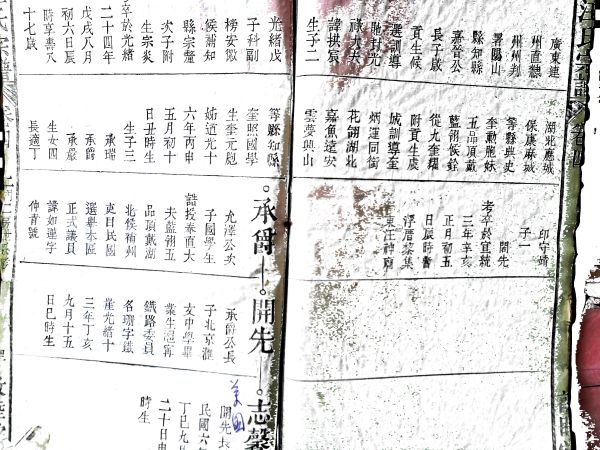 廣東連
州直隸
州州判
署陽山
縣知縣
嘉晉公
長子歲
貢生候
選訓導
馳封光
祿大夫
諱拱宸
生子二
光緒戊
子科副
榜安徽
候補知
縣宗鏊
次子附
生宗炎
卒於光緒
二十四年
戊戌八月
初六日辰
時享壽八
十七歲
湖北應城
保康麻城
等縣典史
奎勳胞妹
五品頂戴
藍翎候銓
從九奎耀
附貢生虞
城訓導奎
炳運同銜
花翎湖北
嘉魚遠安
雲夢興山
等縣知縣
奎照國學
生奎元胞
姊道光十
六年丙申
五月初十
日丑時生
生子三
承瑞
承爵
承嚴
生女四
長適丁
印守靖
子一
開先
考卒於宣統
三年辛亥
正月初五
日辰時
浮厝黎集
東江神廟
承爵
允澤公次
子國學生
誥授奉直大
夫藍翎五
品頂戴湖
北候補州
吏目民國
選舉本區
正式議員
諱如蓮字
仲青號
開先
承爵公長
子北京滙
文中學畢
業生滬寧
鐵路委員
名珊字鐵
崖光緒十
三年丁亥
九月十五
日巳時生
志馨
美國
開先長
民國六年
丁巳九月
二十日申
時生